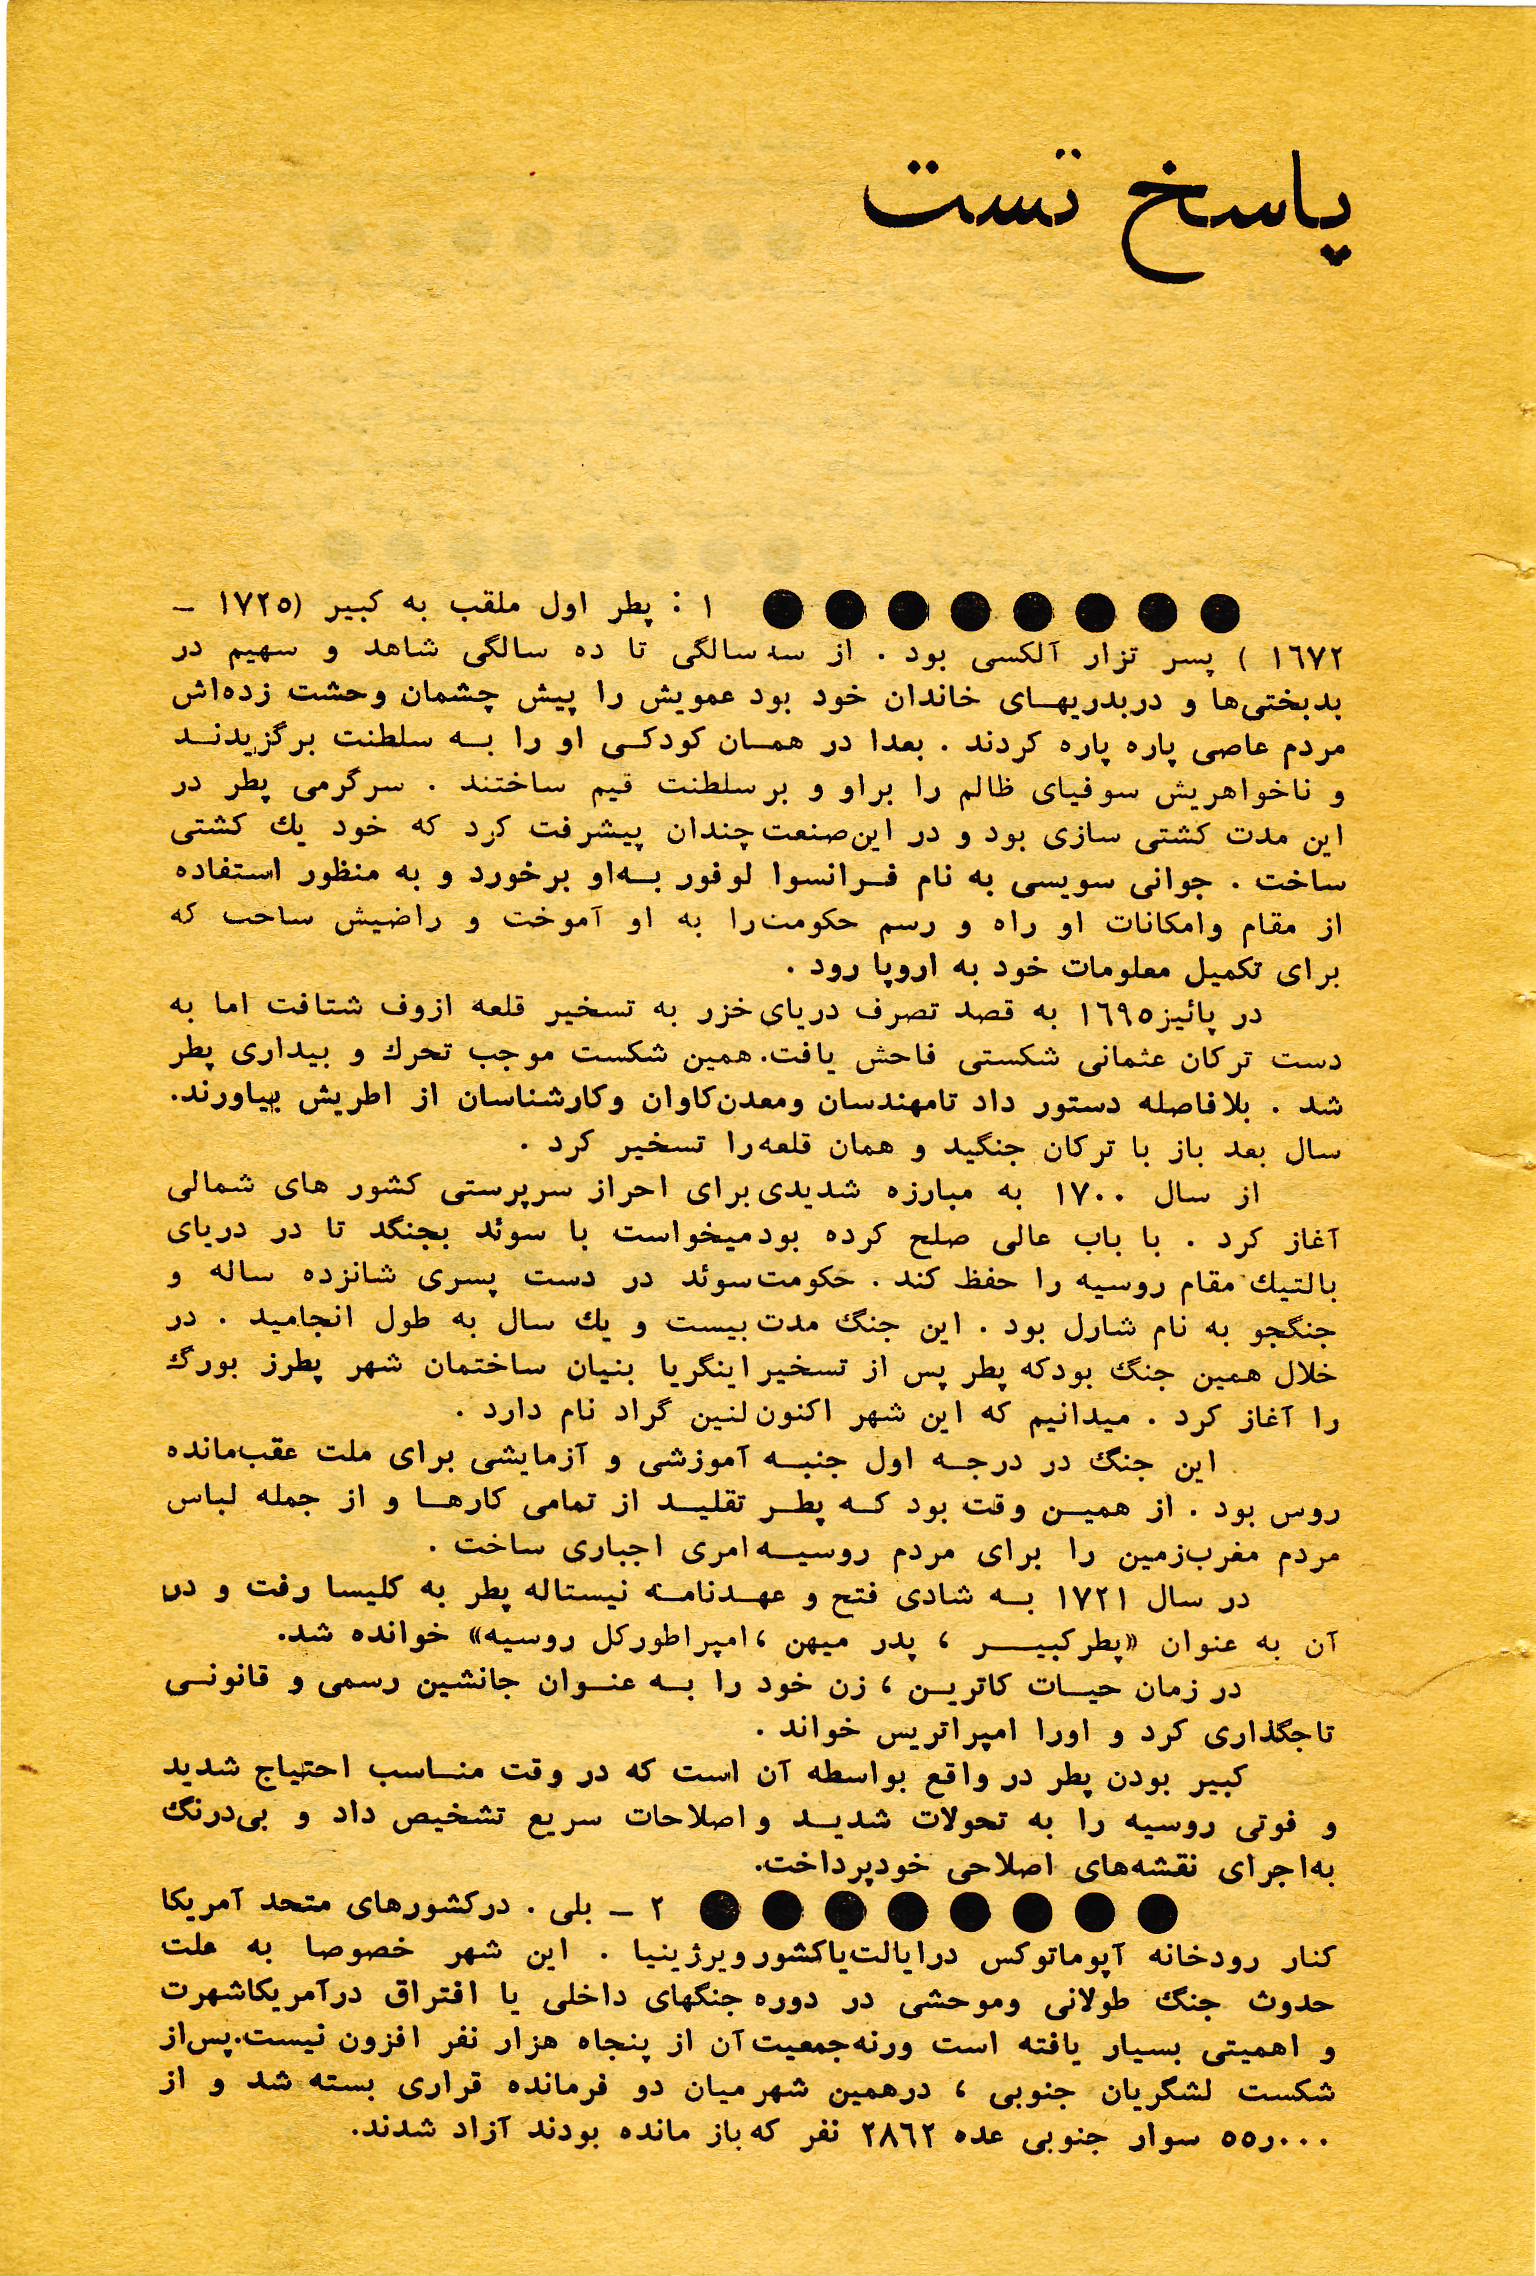 پاسخ تست
۱ : پطر اول ملقب به کبیر (۱۷۲۵ –
۱۶۷۲ ) پسر تزار آلکسی بود . از سه سالگی تا ده سالگی شاهد و سهیم در
بدبختی‌ها و دربدریهـای خاندان خود بود عمویش را پیش چشمان وحشت زده‌اش
مردم عاصی پاره پاره کردند . بعدا در همـان کودکـی او را بـه سلطنت برگزیدنـد
و ناخواهریش سوفیای ظالم را براو و بر سلطنت قیم ساختند . سرگرمی پطر در
این مدت کشتی سازی بود و در این‌صنعت چندان پیشرفت کرد که خود یك کشتی
ساخت . جوانی سویسی به نام فـرانسوا لوفور بـه‌او برخورد و به منظور استفاده
از مقام وامکانات او راه و رسم حکومت‌را به او آموخت و راضیش ساحت که
برای تکمیل معلومات خود به اروپا رود .
در پائیز۱۶۹۵ به قصد تصرف دریای‌خزر به تسخیر قلعه ازوف شتافت اما به
دست ترکان عثمانی شکستی فاحش یافت. همین شکست موجب تحرك و بیداری پطر
شد . بلافاصله دستور داد تامهندسان ومعدن‌کاوان وکارشناسان از اطریش بیاورند.
سال بعد باز با ترکان جنگید و همان قلعه‌را تسخیر کرد .
از سال ۱۷۰۰ به مبارزه شدیدی‌برای احراز سرپرستی کشور های شمالی
آغاز کرد . با باب عالی صلح کرده بود‌میخواست با سوئد بجنگد تا در دریای
بالتیك مقام روسیه را حفظ کند . حکومت‌سوئد در دست پسری شانزده ساله و
جنگجو به نام شارل بود . این جنگ مدت بیست و یك سال به طول انجامید . در
خلال همین جنگ بودکه پطر پس از تسخیر اینگریا بنیان ساختمان شهر پطرز بورگ
را آغاز کرد . میدانیم که این شهر اکنون لنین گراد نام دارد .
این جنگ در درجـه اول جنبـه آموزشی و آزمایشی برای ملت عقب‌مانده
روس بود . از همیـن وقت بود کـه پطـر تقلیـد از تمامی کارهـا و از جمله لباس
مردم مغرب‌زمین را برای مردم روسیـه امری اجباری ساخت .
در سال ۱۷۲۱ بـه شادی فتح و عهـدنامـه نیستاله پطر به کلیسا رفت و در
آن به عنوان «پطرکبیـر ، پدر میهن ،امپراطورکل روسیه» خوانده شد.
در زمان حیـات کاتریـن ، زن خود را بـه عنـوان جانشین رسمی و قانونـی
تاجگذاری کرد و اورا امپراتریس خواند .
کبیر بودن پطر در واقع بواسطه آن است که در وقت منـاسب احتیاج شدید
و فوتی روسیه را به تحولات شدیـد واصلاحات سریع تشخیص داد و بی‌درنگ
به‌اجرای نقشه‌های اصلاحی خودپرداخت.
۲ – بلی . درکشورهای متحد آمریکا
کنار رودخانه آپوماتوکس درایالت‌یاکشور ویرژینیا . این شهر خصوصا به علت
حدوث جنگ طولانی وموحشی در دوره جنگهای داخلی یا افتراق درآمریکاشهرت
و اهمیتی بسیار یافته است ورنه‌جمعیت آن از پنجاه هزار نفر افزون نیست.پس‌از
شکست لشگریان جنوبی ، درهمین شهر میان دو فرمانده قراری بسته شد و از
۵۵ر۰۰۰ سوار جنوبی عده ۲۸۶۲ نفر که باز مانده بودند آزاد شدند.